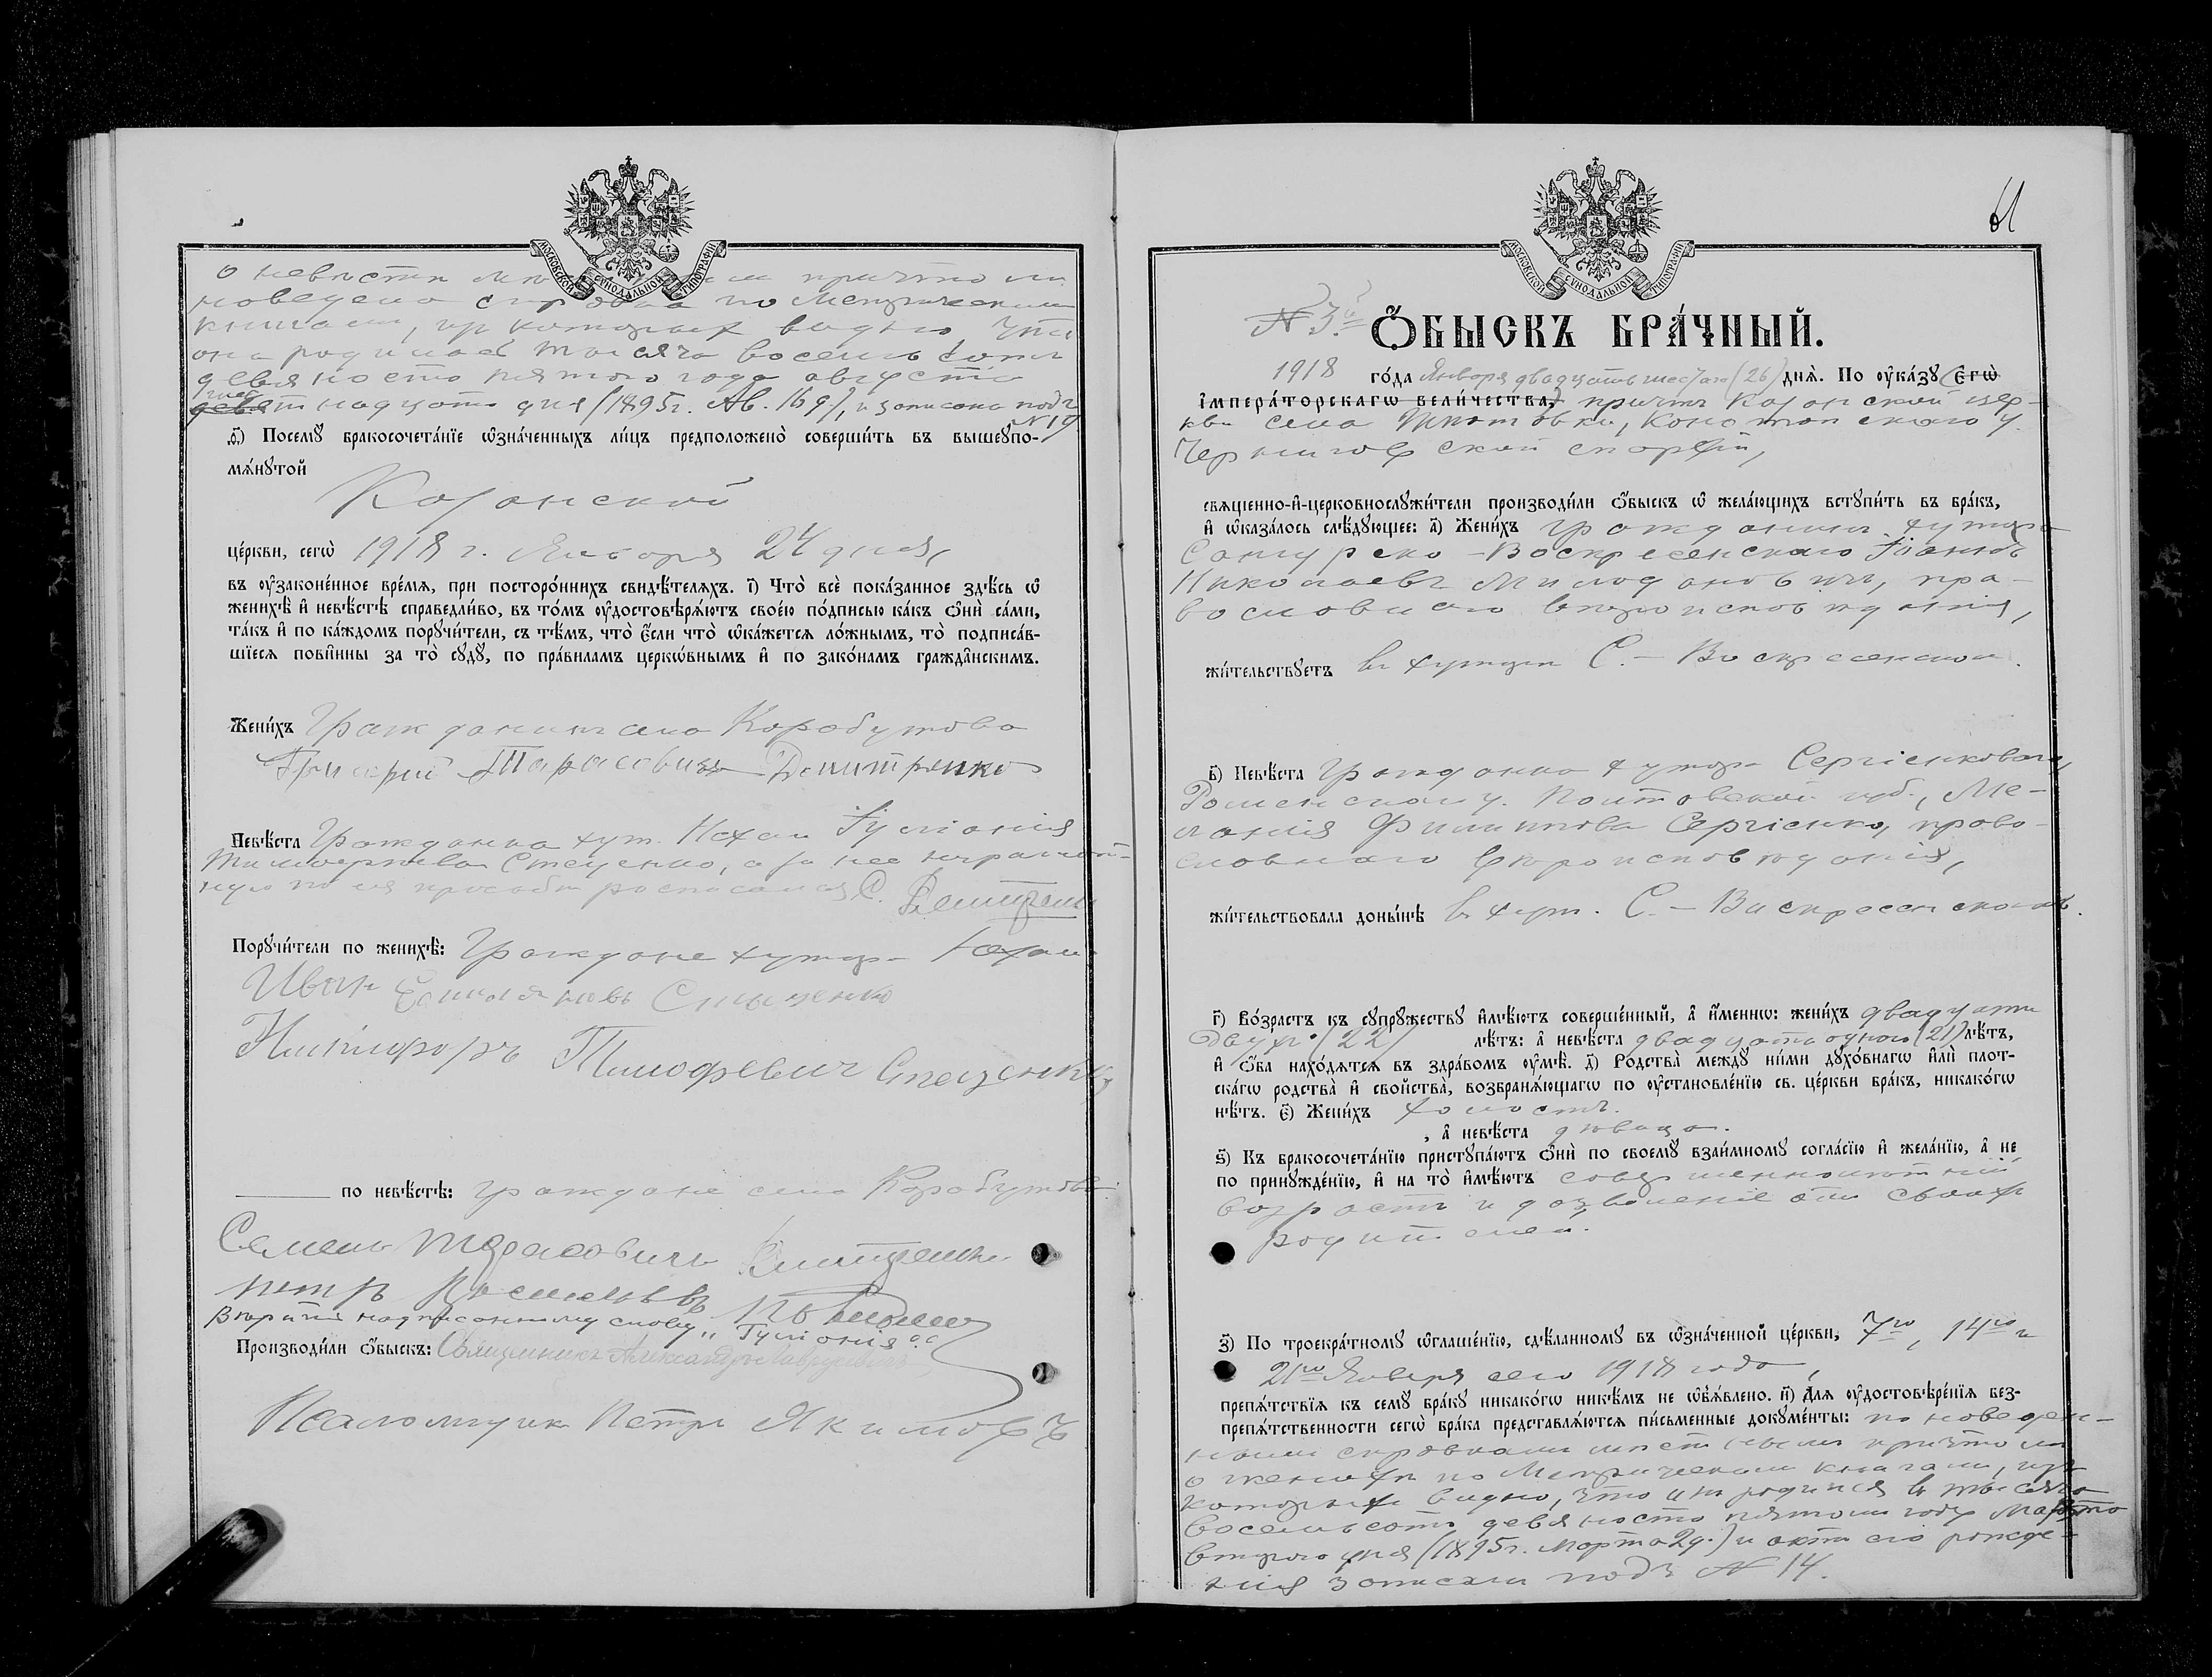 МОСКОВСКОЙ СѴНОДАЛЬНОЙ ТИПОГРАФІИ
о невѣстѣ причтомъ
наведена справка по Метрическимъ
книгамъ, изъ которыхъ видно что
она родилась тысяча восемьсотъ
девяносто пятого года августа
шест
девятнадцатого дня (1895 г. Ав. 16 д.), и записана подъ
№ 19
ѳ҃) Посемꙋ бракосочета́нїе ѡ҆зна́ченныхъ ли́цъ предположено̀ соверши́ть въ вышеꙋпо-
мѧ́нꙋтой
Казанской
це́ркви, сегѡ̀ 1918 г. Января 24 дня,
въ ᲂу҆законе́нное вре́мѧ, при посторо́ннихъ свидѣ́телѧхъ. і҃) Что̀ всѐ пока́занное здѣ́сь ѡ҆
женихѣ̀ и҆ невѣ́стѣ справедли́во, въ то́мъ ᲂу҆достовѣрѧ́ютъ свое́ю по́дписью ка́къ ѻ҆нѝ са́ми,
та́къ и҆ по ка́ждомъ порꙋчи́тели, съ тѣ́мъ, что̀ є҆́сли что̀ ѡ҆ка́жетсѧ ло́жнымъ, то̀ подписа́в-
шїесѧ пови́нны за то̀ сꙋдꙋ̀, по пра́виламъ церкѡ́внымъ и҆ по зако́намъ гражда́нскимъ.
Жени́хъ Гражданинъ села Коробутова
Григорій Тарасовичъ Дмитренко
Невѣ́ста Гражданка хут. Юхам Гуліанія
Тимофеева Стеценко, а за нее неграмот-
ную по ея просьбѣ росписался С. Дмитренко
Порꙋчи́тели по женихѣ̀: Граждане хутора Юхам
Иван Емильяновъ Стеценко
Никифоръ Тимофевич Стеценко
по невѣ́стѣ: граждане села Коробутова
Семенъ Тарасовичъ Дмитренко
петръ
Вторично надписанному слову „Гуліанія"
Производи́ли ѻ҆́быскъ: Священникъ Александръ
Псаломщик Петръ Якимовъ
61
МОСКОВСКОЙ СѴНОДАЛЬНОЙ ТИПОГРАФІИ
№ 3.й
Ѻ҆́БЫСКЪ БРА́ЧНЫЙ.
1918 го́да Января двадцать шестаго (26) днѧ̀. По ᲂу҆ка́зꙋ (Є҆гѡ̀
І҆мпера́торскагѡ вели́чества,) причтъ Казанской цер-
кви села Конотопскаго у.
Черниговской епархіи,
свѧще́нно-и҆-церковнослꙋжи́тели производи́ли ѻ҆́быскъ ѡ҆ жела́ющихъ встꙋпи́ть въ бра́къ,
и҆ ѡ҆каза́лось слѣ́дꙋющее: а҃) Жени́хъ гражданинъ хутора
Сангурско-Воскресенскаго Іоаннъ
Николаевъ Милодановичъ, пра-
вославнаго вѣроисповѣданія,
жи́тельствꙋетъ въ хуторѣ С.-Воскресенскомъ.
в҃) Невѣ́ста Гражданка хутора Сергіенкова,
Роменскаго у. Полтавской губ., Ме-
ланія Филиппова Сергіенко, право-
славнаго вѣроисповѣданія,
жи́тельствовала доны́нѣ въ хут. С.-Воскресенскомъ.
г҃) Во́зрастъ къ сꙋпрꙋ́жествꙋ и҆мѣ́ютъ соверше́нный, а҆ и҆́меннѡ: жени́хъ двадцати
двухъ (22) лѣ́тъ: а҆ невѣ́ста двадцати одного (21) лѣ́тъ,
и҆ ѻ҆́ба нахо́дѧтсѧ въ здра́вомъ ᲂу҆мѣ̀. д҃) Родства̀ междꙋ̀ ни́ми дꙋхо́внагѡ и҆лѝ плот-
ска́гѡ родства̀ и҆ сво́йства̀, возбранѧ́ющагѡ по ᲂу҆становле́нїю св. це́ркви бра́къ, никако́гѡ
нѣ́тъ. є҃) Жени́хъ холостъ.
, а҆ невѣ́ста дѣвица.
ѕ҃) Къ бракосочета́нїю пристꙋпа́ютъ ѻ҆нѝ по своемꙋ̀ взаи́мномꙋ согла́сїю и҆ жела́нїю, а҆ не
по принꙋжде́нїю, и҆ на то̀ и҆мѣ́ютъ совершеннолѣтній
возрастъ и дозволеніе отъ своихъ
родителей.
з҃) По троекра́тномꙋ ѡ҆глаше́нїю, сдѣ́ланномꙋ въ ѡ҆зна́ченной це́ркви, 7го, 14го и
21го Января сего 1918 года,
препѧ́тствїѧ къ семꙋ̀ бра́кꙋ никако́гѡ никѣ́мъ не ѡ҆б̾ѧ́влено. и҃) Длѧ ᲂу҆достовѣре́нїѧ без-
препѧ́тственности сегѡ̀ бра́ка представлѧ́ютсѧ пи́сьменные докꙋме́нты: по наведен-
нымъ справкамъ мѣстнымъ причтомъ
о женихѣ по Метрическимъ книгамъ, изъ
которыхъ видно, что онъ родился въ тысяча
восемьсотъ девяносто пятомъ году Марта
второго дня (1895 г. Марта 2 д.) и актъ его рожде-
нія записанъ подъ № 14.